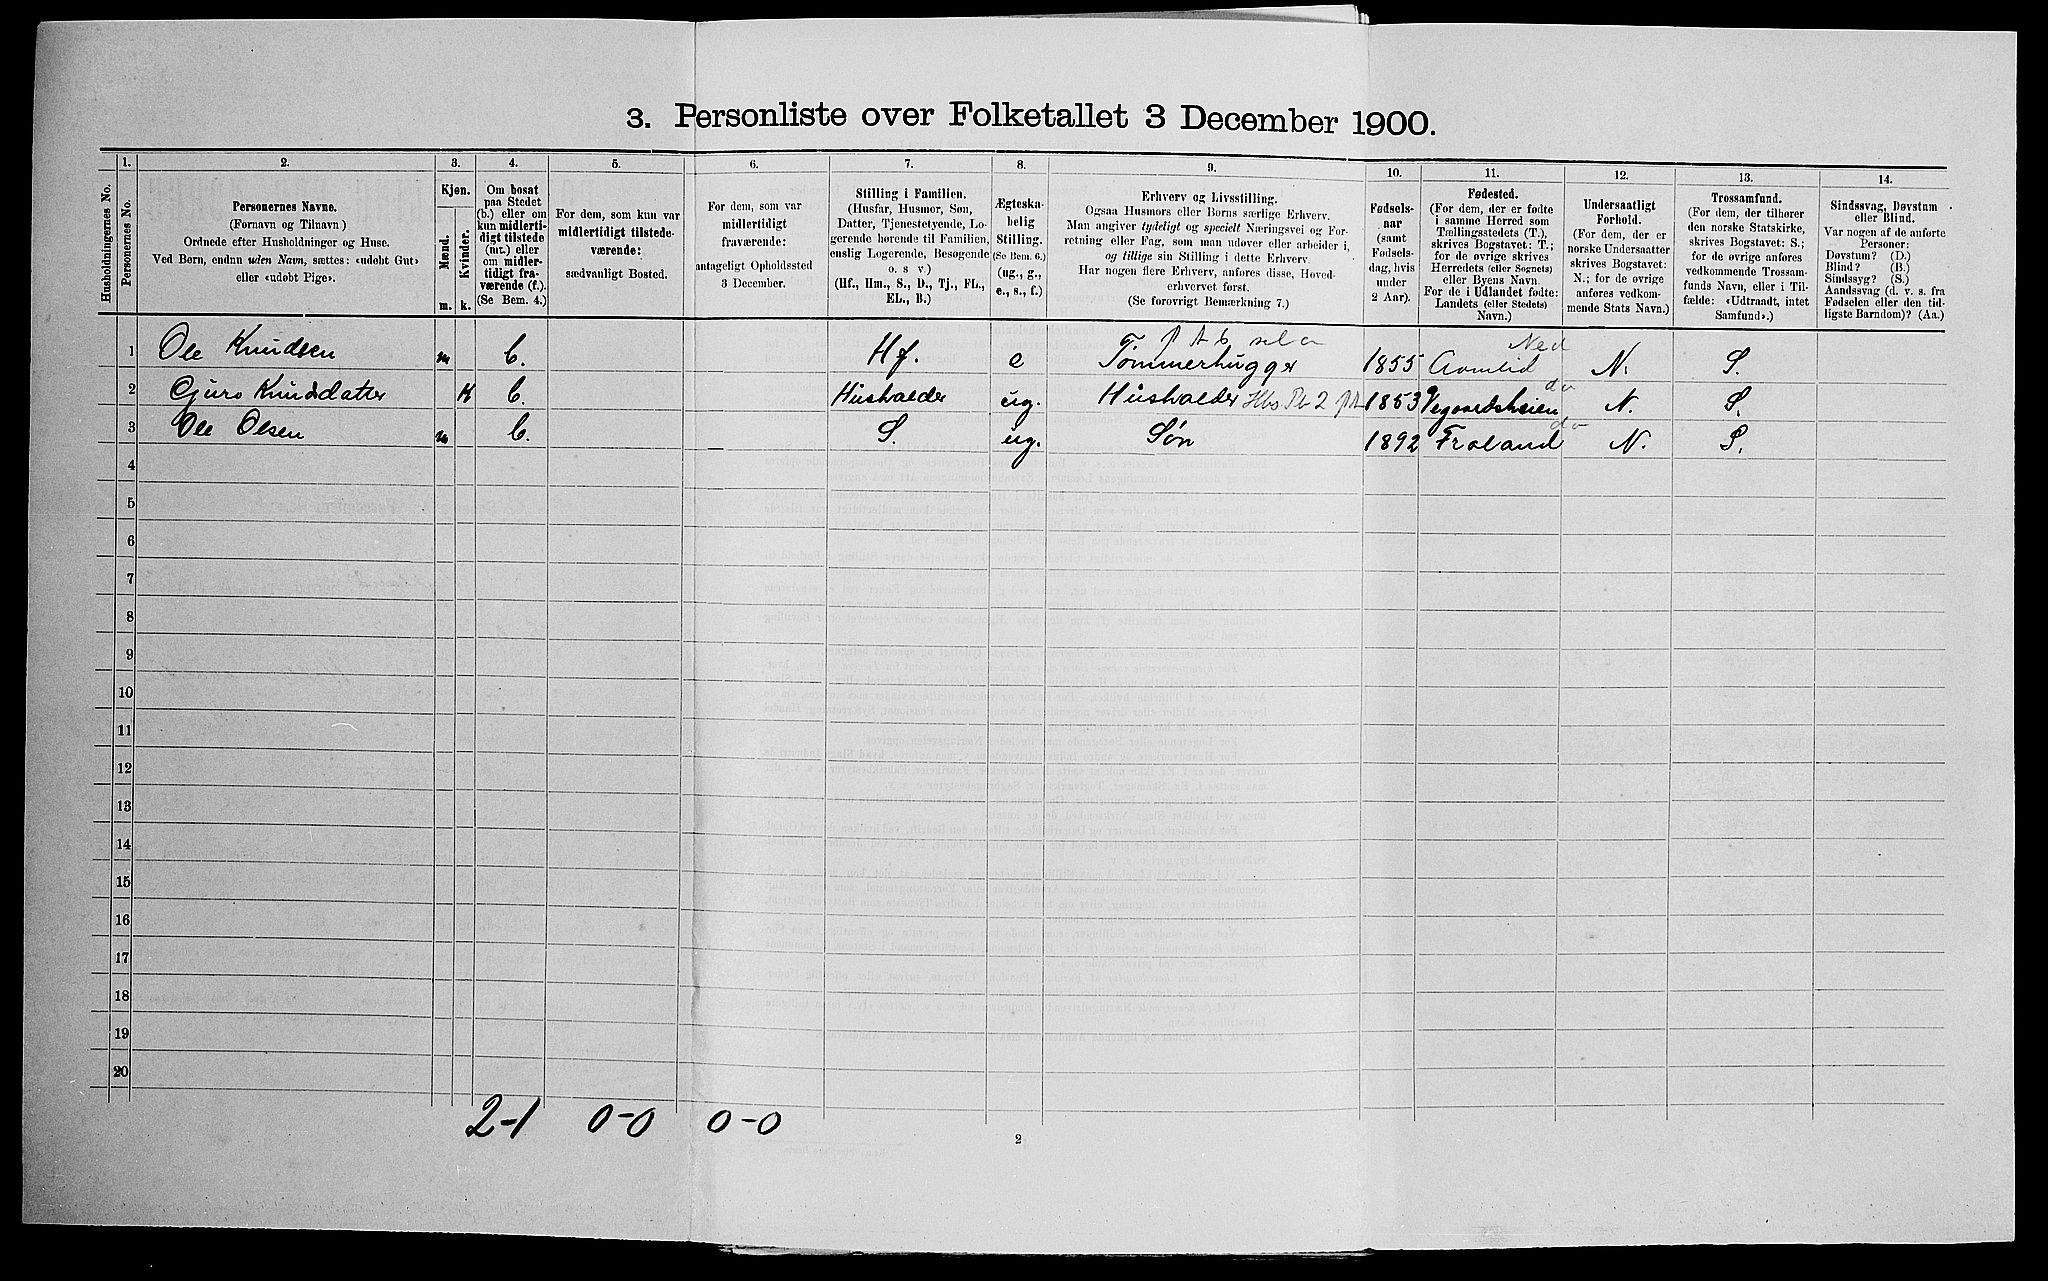 3. Personliste over Folketallet 3 December 1900.
1. 2. 3. 4. 5. 6. 7. 8. 9. 10. 11. 12. 13. 14.
Husholdningernes No.
Personernes No.
Personernes Navne.
(Fornavn og Tilnavn)
Ordnede efter Husholdninger og Huse.
Ved Børn, endnu uden Navn, sættes: «udøbt Gut»
eller «udøbt Pige».
Kjøn.
Mænd.
Kvinder.
m. k.
Om bosat
paa Stedet
(b.) eller om
kun midlerti-
digt tilstede
(mt.) eller
om midler-
tidigt fra-
værende (f.).
(Se Bem. 4.)
For dem, som kun var
midlertidigt tilstede-
værende:
sædvanligt Bosted.
For dem, som var
midlertidigt
fraværende:
antageligt Opholdssted
3 December.
Stilling i Familien.
(Husfar, Husmor, Søn,
Datter, Tjenestetyende, Lo-
gerende hørende til Familien,
enslig Logerende, Besøgende
o. s v.)
(Hf., Hm., S., D., Tj., FL.,
EL., B.)
Ægteska-
belig
Stilling.
(Se Bem. 6.)
(ug., g.,
e., s., f.)
Erhverv og Livsstilling.
Ogsaa Husmors eller Børns særlige Erhverv.
Man angiver tydeligt og specielt Næringsvei og For-
retning eller Fag, som man udøver eller arbeider i,
og tillige sin Stilling i dette Erhverv.
Har nogen flere Erhverv, anføres disse, Hoved-
erhvervet først.
(Se forøvrigt Bemærkning 7.)
Fødsels-
aar
(samt
Fødsels-
dag, hvis
under
2 Aar).
Fødested.
(For dem, der er fødte
i samme Herred som
Tællingsstedets (T.),
skrives Bogstavet: T.;
for de øvrige skrives
Herredets (eller Sognets)
eller Byens Navn.
For de i Udlandet fødte:
Landets (eller Stedets)
Navn.)
Undersaatligt
Forhold.
(For dem, der er
norske Undersaatter
skrives Bogstavet:
N.; for de øvrige
anføres vedkom-
mende Stats Navn.)
Trossamfund.
(For dem, der tilhører
den norske Statskirke,
skrives Bogstavet: S.;
for de øvrige anføres
vedkommende Trossam-
funds Navn, eller i Til-
fælde: «Udtraadt, intet
Samfund».)
Sindssvag, Døvstum
eller Blind.
Var nogen af de anførte
Personer:
Døvstum? (D.)
Blind? (B.)
Sindssyg? (S.)
Aandssvag (d. v. s. fra
Fødselen eller den tid-
ligste Barndom)? (Aa.)
Ned
1 Ole Knudsen m b. Hf. e Tømmerhugger 1855 Aamlid N. S.
do
2 Gjuro Knudsdatter K b. Husholder ug. Husholder 1853 Vegaardsheien N. S.
do
3 Ole Olsen m b. S. ug. Søn 1892 Froland N. S.
4
5
6
7
8
9
10
11
12
13
14
15
16
17
18
19
20
2-1 0-0 0-0
2